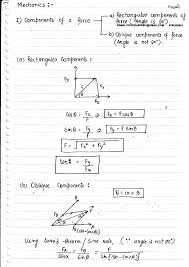 Mechanics :-
1) Components of a force
a) Rectangular components of force (Angle is 90°)
b) Oblique components of force
(Angle is not 90°)
(a) Rectangular Components :
Fy
F
θ
Fx
Cosθ = Fx/F ⇒ Fx = F cosθ
Sinθ = Fy/F ⇒ Fy = F sinθ
F = √Fx² + Fy²
tanθ = Fy/Fx
(b) Oblique Components :
θ = α + β
Using Lami's theorem / Sine rule, (∵ angle is not 90°)